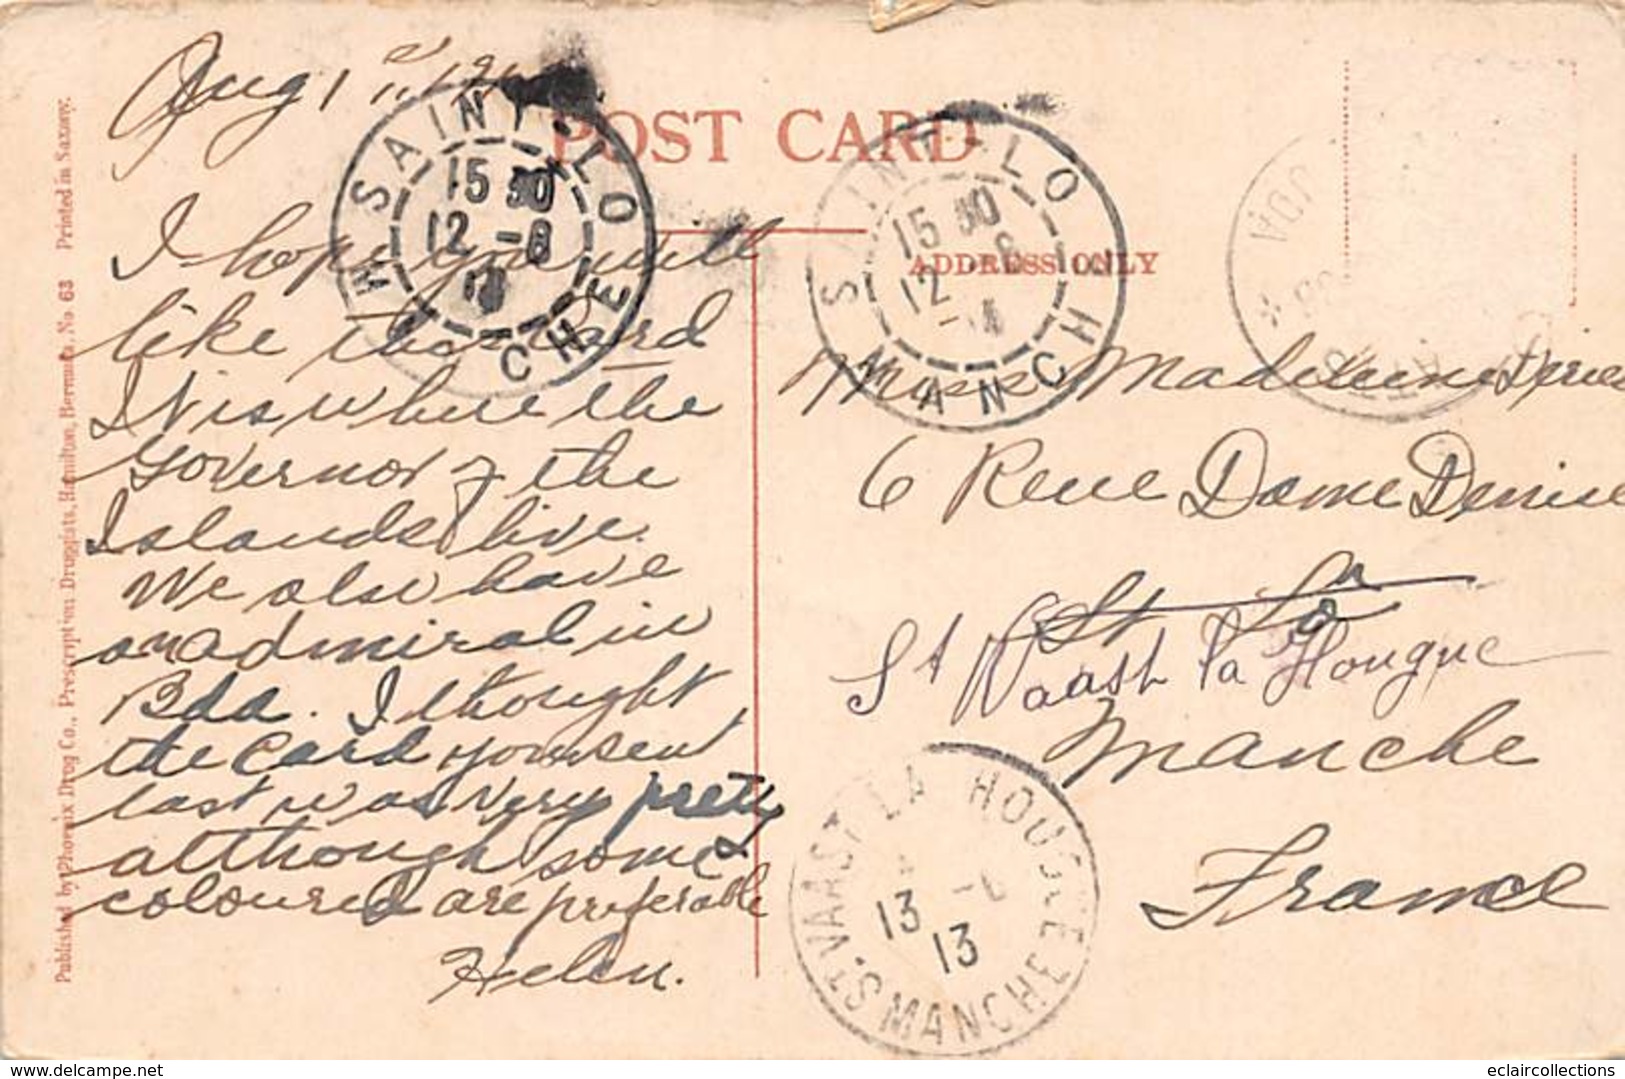 Aug 1
POST CARD
ADDRESS ONLY
I hope you will
like this card
It is where the
Governor of the
Islands live.
We also have
an admiral in
Bda. I thought
the card you sent
last was very pretty
although some
coloured are preferable
Helen.
Miss Madeleine
6 Rue Dame Denise
St Lo
St Vaast la Hougue
Manche
France
SAINT-LO
15 30
12 -8
MANCHE
SAINT-LO
15 30
12 -8
MANCHE
ST VAAST LA HOUGUE
13
13
MANCHE
Published by Phoenix Drug Co., Prescription Druggists, Hamilton, Bermuda. No. 63 Printed in Saxony.
eclaircollections